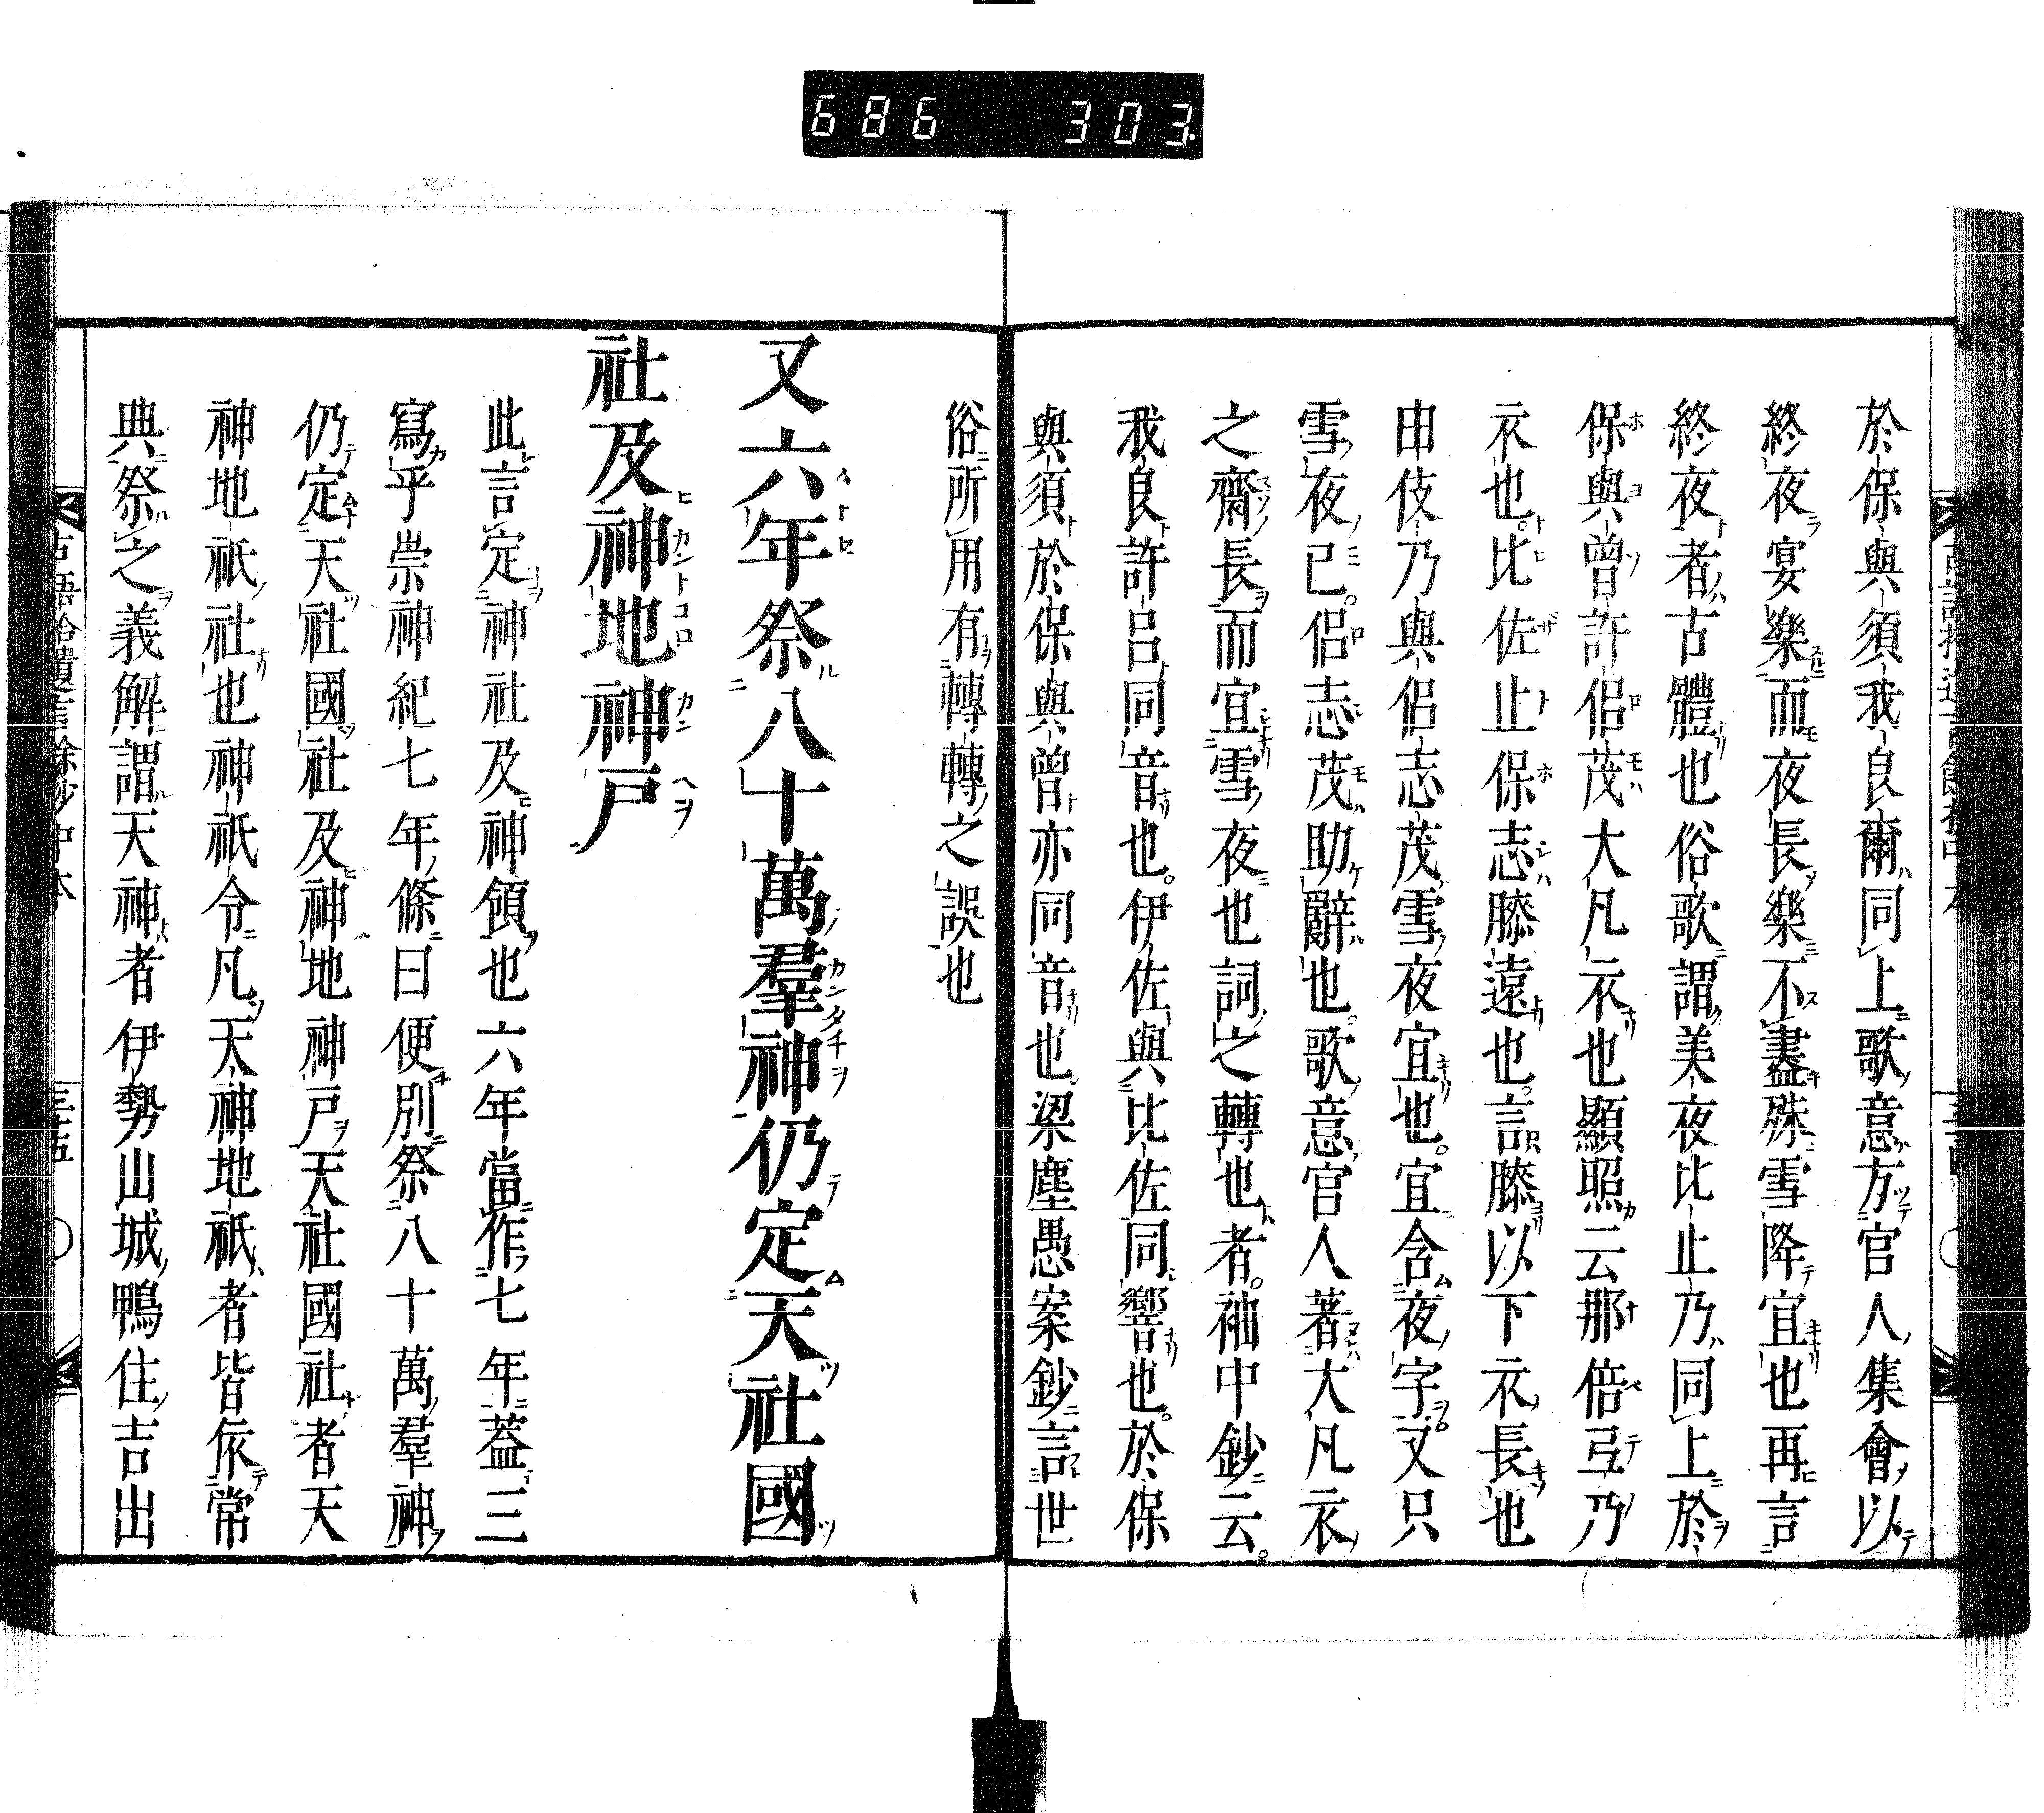 686 303
於保與須我良爾同上歌意方官人集會以
終夜宴樂而夜長樂不盡殊雪降宜也再言
終夜者古體也俗歌謂美夜比止乃同上於
保與曾許侶茂大凡衣也顯照云那倍弖乃
衣也比佐止保志膝遠也言膝以下衣長也
由伎乃與侶志茂雪夜宜也宜含夜字又只
雪夜已侶志茂助辭也歌意官人著大凡衣
之齋長而宜雪夜也詞之轉也者袖中鈔云
我良許呂同音也伊佐與比佐同響也於保
與須於保與曾亦同音也梁塵愚案鈔言世
俗所用有轉轉之誤也
又六年祭八十萬羣神仍定天社國
社及神地神戸
此言定神社及神領也六年當作七年蓋三
寫乎崇神紀七年條曰便別祭八十萬羣神
仍定天社國社及神地神戸天社國社者天
神地祇社也神祇令凡天神地祇者皆依常
典祭之義解謂天神者伊勢山城鴨住吉出
古語拾遺言餘鈔中本 三十五